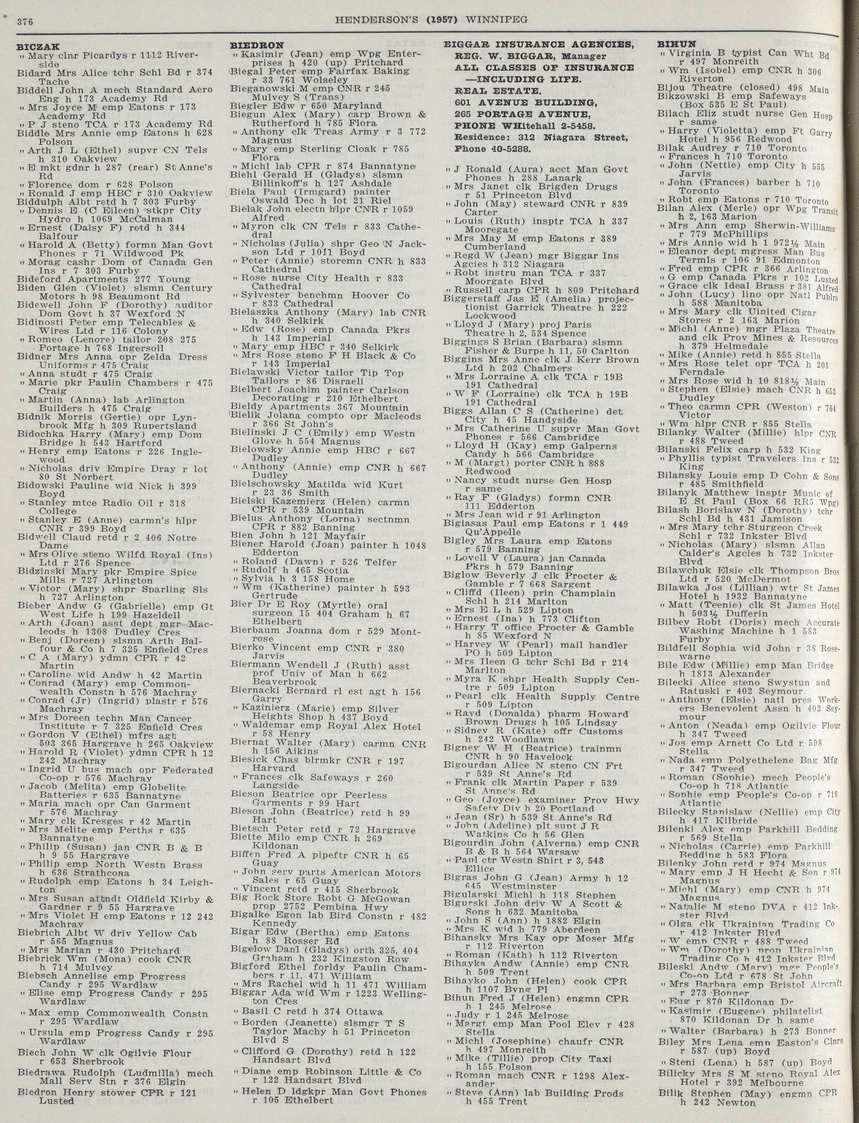 376
HENDERSON'S (1957) WINNIPEG
BICZAK
" Mary clnr Picardys r 1112 River-
side
Bidard Mrs Alice tchr Schl Bd r 374
Tache
Biddell John A mech Standard Aero
Eng h 173 Academy Rd
" Mrs Joyce M emp Eatons r 173
Academy Rd
" P J steno TCA r 173 Academy Rd
Biddle Mrs Annie emp Eatons h 628
Polson
" Arth J L (Ethel) supvr CN Tels
h 310 Oakview
" E mkt gdnr h 287 (rear) St Anne's
Rd
" Florence dom r 628 Polson
" Ronald J emp HBC r 310 Oakview
Biddulph Albt retd h 7 303 Furby
" Dennis E (C Eileen) stkpr City
Hydro h 1069 McCalman
" Ernest (Daisy F) retd h 344
Balfour
" Harold A (Betty) formn Man Govt
Phones r 71 Wildwood Pk
" Morag cashr Dom of Canada Gen
Ins r 7 303 Furby
Bideford Apartments 277 Young
Biden Glen (Violet) slsmn Century
Motors h 98 Beaumont Rd
Bidewell John F (Dorothy) auditor
Dom Govt h 37 Wexford N
Bidinosti Peter emp Telecables &
Wires Ltd r 116 Colony
" Romeo (Lenore) tailor 208 275
Portage h 768 Ingersoll
Bidner Mrs Anna opr Zelda Dress
Uniforms r 475 Craig
" Anna studt r 475 Craig
" Marie pkr Paulin Chambers r 475
Craig
" Martin (Anna) lab Arlington
Builders h 475 Craig
Bidnik Morris (Gertie) opr Lyn-
brook Mfg h 309 Rupertsland
Bidochka Harry (Mary) emp Dom
Bridge h 543 Hartford
" Henry emp Eatons r 226 Ingle-
wood
" Nicholas driv Empire Dray r lot
80 St Norbert
Bidowski Pauline wid Nick h 399
Boyd
" Stanley mtce Radio Oil r 318
College
" Stanley E (Anne) carmn's hlpr
CNR r 399 Boyd
Bidwell Claud retd r 2 406 Notre
Dame
" Mrs Olive steno Wilfd Royal (Ins)
Ltd r 276 Spence
Bidzinski Mary pkr Empire Spice
Mills r 727 Arlington
" Victor (Mary) shpr Sparling Sls
h 727 Arlington
Bieber Andw G (Gabrielle) emp Gt
West Life h 199 Hazeldell
" Arth (Joan) asst dept mgr Mac-
leods h 1308 Dudley Cres
" Benj (Doreen) slsmn Arth Bal-
four & Co h 7 325 Enfield Cres
" C A (Mary) ydmn CPR r 42
Martin
" Caroline wid Andw h 42 Martin
" Conrad (Mary) emp Common-
wealth Constn h 576 Machray
" Conrad (Jr) (Ingrid) plastr r 576
Machray
" Mrs Doreen techn Man Cancer
Institute r 7 325 Enfield Cres
" Gordon V (Ethel) mfrs agt
503 365 Hargrave h 265 Oakview
" Harold R (Violet) ydmn CPR h 12
242 Machray
" Ingrid U bus mach opr Federated
Co-op r 576 Machray
" Jacob (Melita) emp Globelite
Batteries r 635 Bannatyne
" Maria mach opr Can Garment
r 576 Machray
" Mary clk Kresges r 42 Martin
" Mrs Melite emp Perths r 635
Bannatyne
" Philip (Susan) jan CNR B & B
h 9 55 Hargrave
" Philip emp North Westn Brass
h 636 Strathcona
" Rudolph emp Eatons h 34 Leigh-
ton
" Mrs Susan attndt Oldfield Kirby &
Gardner r 9 55 Hargrave
" Mrs Violet H emp Eatons r 12 242
Machray
Biebrich Albt W driv Yellow Cab
r 565 Magnus
" Mrs Marian r 430 Pritchard
Biebrick Wm (Mona) cook CNR
h 714 Mulvey
Biebsch Annelise emp Progress
Candy r 295 Wardlaw
" Elise emp Progress Candy r 295
Wardlaw
" Max emp Commonwealth Constn
r 295 Wardlaw
" Ursula emp Progress Candy r 295
Wardlaw
Biech John W clk Ogilvie Flour
r 653 Sherbrook
Biedrawa Rudolph (Ludmilla) mech
Mall Serv Stn r 376 Elgin
Biedron Henry stower CPR r 121
Lusted
BIEDRON
" Kasimir (Jean) emp Wpg Enter-
prises h 420 (up) Pritchard
Biegal Peter emp Fairfax Baking
r 33 761 Wolseley
Bieganowski M emp CNR r 245
Mulvey S (Trans)
Biegler Edw r 650 Maryland
Biegun Alex (Mary) carp Brown &
Rutherford h 785 Flora
" Anthony clk Treas Army r 3 772
Magnus
" Mary emp Sterling Cloak r 785
Flora
" Michl lab CPR r 874 Bannatyne
Biehl Gerald H (Gladys) slsmn
Billinkoff's h 127 Ashdale
Biela Paul (Irmgard) painter
Oswald Dec h lot 21 Riel
Bielak John electn hlpr CNR r 1059
Alfred
" Myron clk CN Tels r 833 Cathe-
dral
" Nicholas (Julia) shpr Geo N Jack-
son Ltd r 1011 Boyd
" Peter (Annie) storemn CNR h 833
Cathedral
" Rose nurse City Health r 833
Cathedral
" Sylvester benchmn Hoover Co
r 833 Cathedral
Bielaszka Anthony (Mary) lab CNR
h 340 Selkirk
" Edw (Rose) emp Canada Pkrs
h 143 Imperial
" Mary emp HBC r 340 Selkirk
" Mrs Rose steno F H Black & Co
r 143 Imperial
Bielawski Victor tailor Tip Top
Tailors r 86 Disraeli
Bielbert Joachim painter Carlson
Decorating r 210 Ethelbert
Bieldy Apartments 367 Mountain
Bielik Jolana compto opr Macleods
r 366 St John's
Bielinski J C (Emily) emp Westn
Glove h 554 Magnus
Bielowsky Annie emp HBC r 667
Dudley
" Anthony (Annie) emp CNR h 667
Dudley
Bielschowsky Matilda wid Kurt
r 23 36 Smith
Bielski Kazemierz (Helen) carmn
CPR r 539 Mountain
Bielus Anthony (Lorna) sectnmn
CPR r 882 Banning
Bien John h 121 Mayfair
Biener Harold (Joan) painter h 1048
Edderton
" Roland (Dawn) r 526 Telfer
" Rudolf h 465 Scotia
" Sylvia h 3 158 Home
" Wm (Katherine) painter h 593
Gertrude
Bier Dr E Roy (Myrtle) oral
surgeon 15 404 Graham h 67
Ethelbert
Bierbaum Joanna dom r 529 Mont-
rose
Bierko Vincent emp CNR r 380
Jarvis
Biermann Wendell J (Ruth) asst
prof Univ of Man h 662
Beaverbrook
Biernacki Bernard rl est agt h 156
Garry
" Kazinierz (Marie) emp Silver
Heights Shop h 437 Boyd
" Waldemar emp Royal Alex Hotel
r 58 Henry
Biernat Walter (Mary) carmn CNR
h 156 Aikins
Biesick Chas blrmkr CNR r 197
Harvard
" Frances clk Safeways r 260
Langside
Bieson Beatrice opr Peerless
Garments r 99 Hart
Bieson John (Beatrice) retd h 99
Hart
Bietsch Peter retd r 72 Hargrave
Biette Milo emp CNR h 269
Kildonan
Biffen Fred A pipeftr CNR h 65
Guay
" John serv parts American Motors
Sales r 65 Guay
" Vincent retd r 415 Sherbrook
Big Rock Store Robt G McGowan
prop 2752 Pembina Hwy
Bigalke Egon lab Bird Constn r 482
Kennedy
Bigar Edw (Bertha) emp Eatons
h 88 Rosser Rd
Bigelow Danl (Gladys) orth 325, 404
Graham h 232 Kingston Row
Bigford Ethel forldy Paulin Cham-
bers r 11, 471 William
" Mrs Rachel wid h 11 471 William
Biggar Ada wid Wm r 1223 Welling-
ton Cres
" Basil C retd h 374 Ottawa
" Borden (Jeanette) slsmgr T S
Taylor Machy h 51 Princeton
Blvd S
" Clifford G (Dorothy) retd h 122
Handsart Blvd
" Diane emp Robinson Little & Co
r 122 Handsart Blvd
" Helen D ldgkpr Man Govt Phones
r 105 Ethelbert
BIGGAR INSURANCE AGENCIES,
REG. W. BIGGAR, Manager
ALL CLASSES OF INSURANCE
—INCLUDING LIFE.
REAL ESTATE.
601 AVENUE BUILDING,
265 PORTAGE AVENUE,
PHONE WHitehall 2-5458.
Residence: 312 Niagara Street,
Phone 40-5288.
" J Ronald (Aura) acct Man Govt
Phones h 288 Lanark
" Mrs Janet clk Brigden Drugs
r 51 Princeton Blvd
" John (May) steward CNR r 839
Carter
" Louis (Ruth) insptr TCA h 337
Mooregate
" Mrs May M emp Eatons r 389
Cumberland
" Regd W (Jean) mgr Biggar Ins
Agcies h 312 Niagara
" Robt instru man TCA r 337
Moorgate Blvd
" Russell carp CPR h 809 Pritchard
Biggerstaff Jas E (Amelia) projec-
tionist Garrick Theatre h 222
Lockwood
" Lloyd J (Mary) proj Paris
Theatre h 2, 534 Spence
Biggings S Brian (Barbara) slsmn
Fisher & Burpe h 11, 50 Carlton
Biggins Mrs Anne clk J Kerr Brown
Ltd h 202 Chalmers
" Mrs Lorraine A clk TCA r 19B
191 Cathedral
" W F (Lorraine) clk TCA h 19B
191 Cathedral
Biggs Allan C S (Catherine) det
City h 45 Handyside
" Mrs Catherine U supvr Man Govt
Phones r 566 Cambridge
" Lloyd H (Kay) emp Galperns
Candy h 566 Cambridge
" M (Margt) porter CNR h 888
Redwood
" Nancy studt nurse Gen Hosp
r same
" Ray F (Gladys) formn CNR
111 Edderton
" Mrs Jean wid r 91 Arlington
Bigiasas Paul emp Eatons r 1 449
Qu'Appelle
Bigley Mrs Laura emp Eatons
r 579 Banning
" Lovell V (Laura) jan Canada
Pkrs h 579 Banning
Biglow Beverly J clk Procter &
Gamble r 7 668 Sargent
" Cliffd (Ileen) prin Champlain
Schl h 214 Marlton
" Mrs E L h 529 Lipton
" Ernest (Ina) h 773 Clifton
" Harry T office Procter & Gamble
h 85 Wexford N
" Harvey W (Pearl) mail handler
PO h 509 Lipton
" Mrs Ileen G tchr Schl Bd r 214
Marlton
" Myra K shpr Health Supply Cen-
tre r 509 Lipton
" Pearl clk Health Supply Centre
r 509 Lipton
" Rayd (Donalda) pharm Howard
Brown Drugs h 105 Lindsay
" Sidney R (Kate) offr Customs
h 242 Woodlawn
Bigney W H (Beatrice) trainmn
CNR h 90 Havelock
Bigourdan Alice N steno CN Frt
r 539 St Anne's Rd
" Frank clk Martin Paper r 539
St Anne's Rd
" Geo (Joyce) examiner Prov Hwy
Safety Div h 20 Portland
" Jean (Sr) h 539 St Anne's Rd
" John (Adeline) plt supt J R
Watkins Co h 56 Glen
Bigourdin John (Alverna) emp CNR
B & B h 564 Warsaw
" Paul ctr Westn Shirt r 3, 543
Ellice
Bigras John G (Jean) Army h 12
645 Westminster
Bigularski Michl h 118 Stephen
Bigurski John driv W A Scott &
Sons h 632 Manitoba
" John S (Ann) h 1882 Elgin
" Mrs K wid h 779 Aberdeen
Bihansky Mrs Kay opr Moser Mfg
r 112 Riverton
" Roman (Kath) h 112 Riverton
Bihayka Andw (Annie) emp CNR
h 509 Trent
Bihayko John (Helen) cook CPR
h 1107 Byng Pl
Bihun Fred J (Helen) engmn CPR
h 1 245 Melrose
" Judy r 1 245 Melrose
" Margt emp Man Pool Elev r 428
Stella
" Michl (Josephine) chaufr CNR
h 497 Monreith
" Mike (Tillie) prop City Taxi
h 155 Polson
" Roman mach CNR r 1298 Alex-
ander
" Steve (Ann) lab Building Prods
h 455 Trent
BIHUN
" Virginia B typist Can Wht Bd
r 497 Monreith
" Wm (Isobel) emp CNR h 306
Riverton
Bijou Theatre (closed) 498 Main
Bikzowski B emp Safeways
(Box 535 E St Paul)
Bilach Eliz studt nurse Gen Hosp
r same
" Harry (Violetta) emp Ft Garry
Hotel h 956 Redwood
Bilak Audrey r 710 Toronto
" Frances h 710 Toronto
" John (Nettie) emp City h 555
Jarvis
" John (Frances) barber h 710
Toronto
" Robt emp Eatons r 710 Toronto
Bilan Alex (Merle) opr Wpg Transit
h 2, 163 Marion
" Mrs Ann emp Sherwin-Williams
r 779 McPhillips
" Mrs Annie wid h 1 972½ Main
" Eleanor dept mgress Man Bus
Termls r 106 91 Edmonton
" Fred emp CPR r 366 Arlington
" G emp Canada Pkrs r 102 Lusted
" Grace clk Ideal Brass r 381 Alfred
" John (Lucy) lino opr Natl Publrs
h 588 Manitoba
" Mrs Mary clk United Cigar
Stores r 2 163 Marion
" Michl (Anne) mgr Plaza Theatre
and clk Prov Mines & Resources
h 379 Helmsdale
" Mike (Annie) retd h 855 Stella
" Mrs Rose telet opr TCA h 201
Ferndale
" Mrs Rose wid h 10 818½ Main
" Stephen (Elsie) mach CNR h 653
Dudley
" Theo carmn CPR (Weston) r 764
Victor
" Wm hlpr CNR r 855 Stella
Bilanky Walter (Millie) hlpr CNR
r 488 Tweed
Bilanski Felix carp h 532 King
" Phyllis typist Travelers Ins r 532
King
Bilansky Louis emp D Cohn & Sons
r 485 Smithfield
Bilanyk Matthew insptr Munic of
E St Paul (Box 66 RR5 Wpg)
Bilash Borislaw N (Dorothy) tchr
Schl Bd h 431 Jamison
" Mrs Mary tchr Sturgeon Creek
Schl r 732 Inkster Blvd
" Nicholas (Mary) slsmn Allan
Calder's Agcies h 732 Inkster
Blvd
Bilawchuk Elsie clk Thompson Bros
Ltd r 520 McDermot
Bilawka Jos (Lillian) wtr St James
Hotel h 1932 Bannatyne
" Matt (Teenie) clk St James Hotel
h 503½ Dufferin
Bilbey Robt (Doris) mech Accurate
Washing Machine h 1 583
Furby
Bildfell Sophia wid John r 38 Rose-
warne
Bile Edw (Millie) emp Man Bridge
h 1813 Alexander
Bilecki Alice steno Swystun and
Ratuski r 402 Seymour
" Anthony (Elsie) natl pres Work-
ers Benevolent Assn h 402 Sey-
mour
" Anton (Neada) emp Ogilvie Flour
h 347 Tweed
" Jos emp Arnett Co Ltd r 598
Stella
" Nada emp Polyethelene Bag Mfg
r 347 Tweed
" Roman (Sophie) mech People's
Co-op h 718 Atlantic
" Sophie emp People's Co-op r 718
Atlantic
Bilecky Stanislaw (Nellie) emp City
h 417 Kilbride
Bilenki Alex emp Parkhill Bedding
r 569 Stella
" Nicholas (Carrie) emp Parkhill
Bedding h 583 Flora
Bilenky John retd r 974 Magnus
" Mary emp J H Hecht & Son r 974
Magnus
" Michl (Mary) emp CNR h 974
Magnus
" Natalie M steno DVA r 412 Ink-
ster Blvd
" Olga clk Ukrainian Trading Co
r 412 Inkster Blvd
" W emp CNR r 488 Tweed
" Wm (Dorothy) prop Ukrainian
Trading Co h 412 Inkster Blvd
Bileski Andw (Mary) mgr People's
Co-op Ltd r 678 St John
" Mrs Barbara emp Bristol Aircraft
r 273 Bonner
" Eug r 870 Kildonan Dr
" Kasimir (Eugene) philatelist
870 Kildonan Dr h same
" Walter (Barbara) h 273 Bonner
Biley Mrs Lena emp Easton's Clnrs
r 587 (up) Boyd
" Steni (Lena) h 587 (up) Boyd
Bilicky Mrs S M steno Royal Alex
Hotel r 392 Melbourne
Bilik Stephen (May) engmn CPR
h 242 Newton